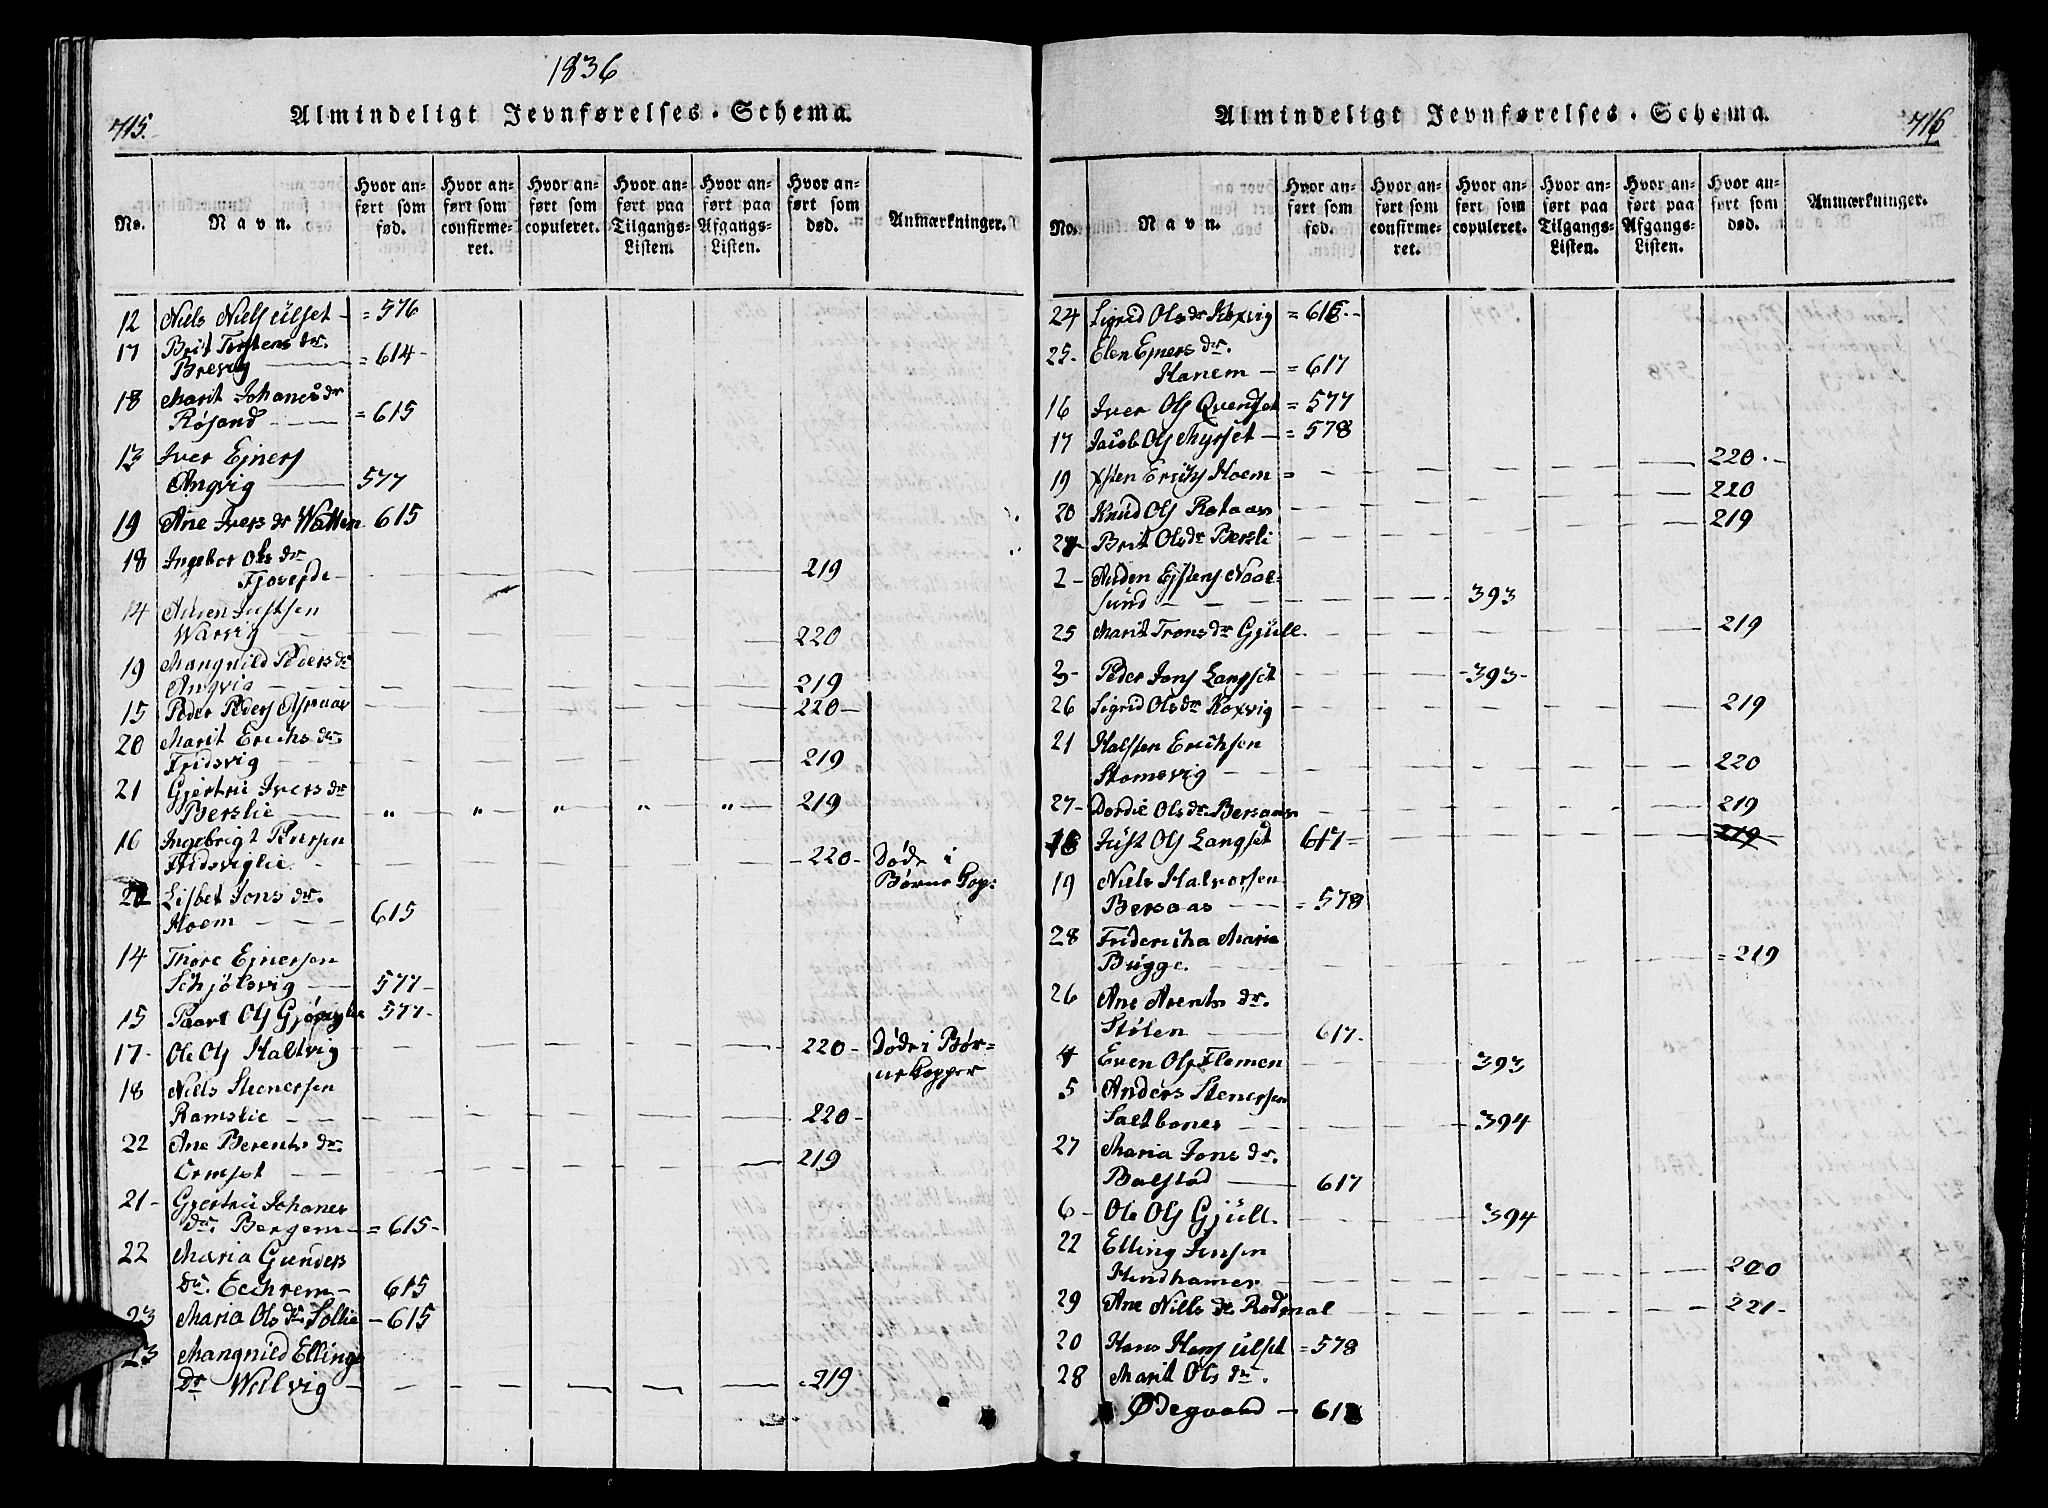 1836
715.
Almindeligt Jevnførelses-Schema.
No.
Navn.
Hvor anført som fød.
Hvor anført som confirmeret.
Hvor anført som copuleret.
Hvor anført paa Tilgangs-Listen.
Hvor anført paa Afgangs-Listen.
Hvor anført som død.
Anmærkninger.
12 Niels Niels Ulset - = 576
17 Brit Torstens dr.
Brevig = 614-
18 Marit Johanes dr
Røsand = 615
13 Iver Ejners
Angvig 577
19 Ane Ivers dr Watten 615
18 Ingebor Ols dr
219
14
Warvig 220
19 Mangnild Peders dr
Angvig 219
15 Peder Peders 220-
20 Marit Erichs dr.
Fridsvig 219
21 Gjertru Ivers dr
Berslie " " " " " 219
16 Ingebrigt
Fridsviglie. - 220- Døde i
Børne Kop:
22 Lisbet Jons dr.
Hoem 615
14 Thore Ejnersen
Schjölsvig 577-
15 Ols 577-
17- Ole Ols Halsvig 220- Døde i Bør-
nekopper
18 Niels Stenersen
Ramslie 220-
22 Ane Berents dr.
Ormset 219
21- Gjertru Johanes
dr. Bergem = 615-
22 Maria Gunders
dr. Echrem- 615
23 Maria Ols dr Sollie - 615
23 Mangnild Ellings
dr Wulvig 219
716
Almindeligt Jevnførelses-Schema.
No.
Navn.
Hvor anført som fød.
Hvor anført som confirmeret.
Hvor anført som copuleret.
Hvor anført paa Tilgangs-Listen.
Hvor anført paa Afgangs-Listen.
Hvor anført som død.
Anmærkninger.
24 Sigrid Ols dr Koxvig = 616--
25- Elen Ejners dr.
Hanem - = 617
16 Iver Ols Qvendset = 577
17 Jacob Ols Myrset - = 578
19 Erichs Hoem = 220--
20 Knud Ols Rotaas 220
Brit Ols dr Bersli 219
2- Anden Ejstens Naal-
sund 393
25 Marit Trons dr Gjüll. 219
3- Peder Jons Langset - 393-
26 Sigrid Ols dr Koxvig 219
21 Halsten Erichsen
Stomsvig 220
27- Dordie Ols dr Bersaas 219
18 Just Ols Langset 617= 219
19 Niels Halvorsen
Bersaas = 578
28 Fridericha Maria
Bügge. = 219
26 Ane Arents dr.
Stølen 617.
4 Even Ols Flemen 393
5 Anders Stenersen
Saltbones 394
27 Maria Jons dr.
Bolstad 617
6- Ole Ols Gjüll. 394
22 Elling Jensen
Hendhamer 220
29 Ane Niels dr Rodmal 221-
20 Hans Hans Ulset = 578
28 Marit Ols dr.
Ødegaard